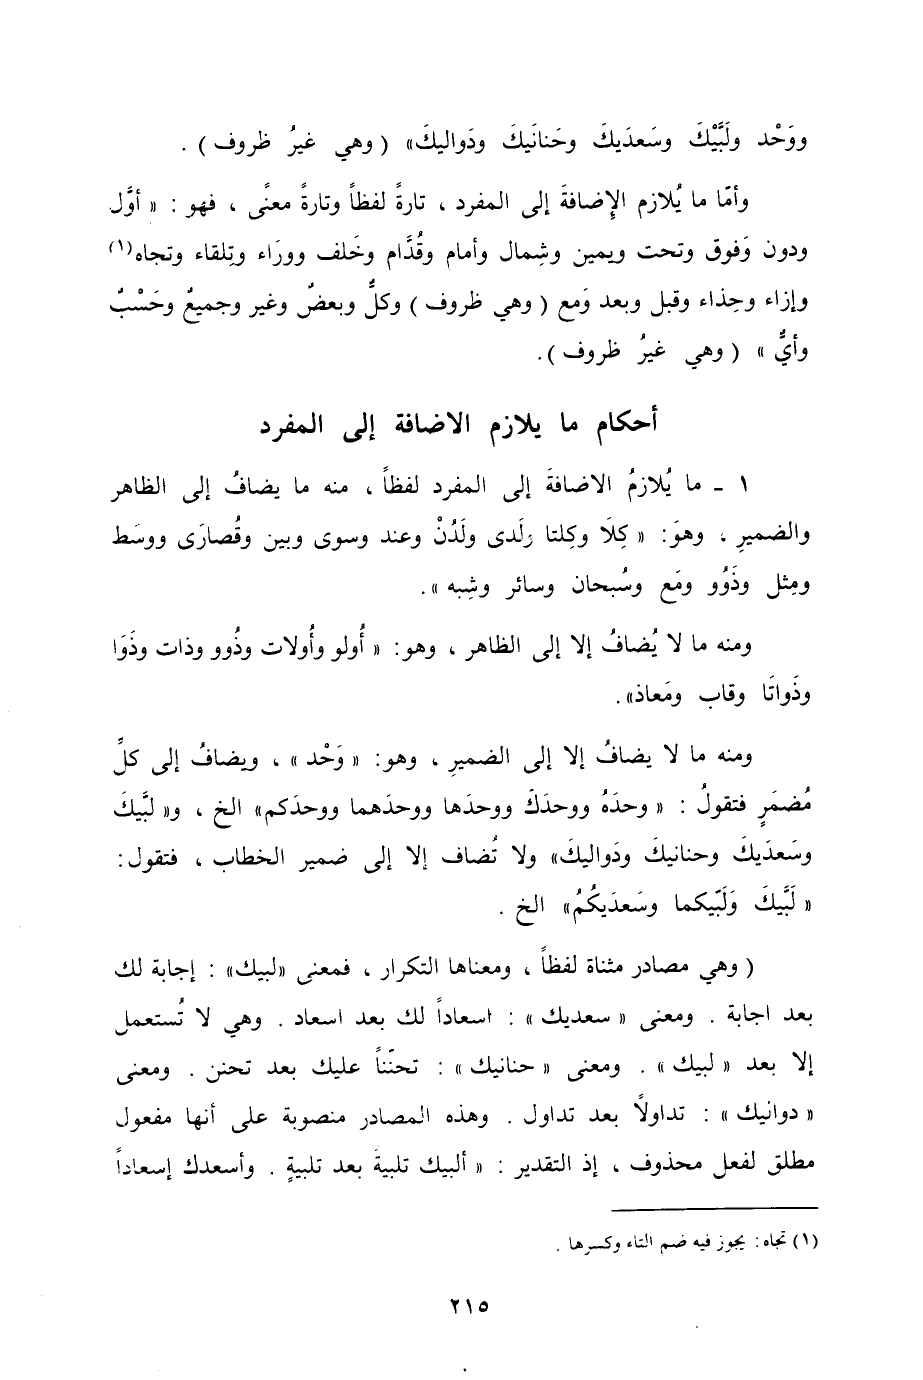 ووَحْد ولَبَّيْكَ وسَعدَيكَ وحَنانَيكَ ودَواليكَ» ( وهي غيرُ ظروف ) .
وأمّا ما يُلازم الإِضافةَ إلى المفرد ، تارةً لفظاً وتارةً معنًى ، فهو : « أوَّل
ودون وَفوق وتحت ويمين وشِمال وأمام وقُدَّام وخَلف ووَراء وتِلقاء وتجاه(١)
وإزاء وحِذاء وقبل وبعد وَمع ( وهي ظروف ) وكلٌّ وبعضٌ وغير وجميعٌ وحَسْبٌ
وأيٌّ » ( وهي غيرُ ظروف ).
أحكام ما يلازم الاضافة إلى المفرد
١ ـ ما يُلازمُ الاضافةَ إلى المفرد لفظاً ، منه ما يضافُ إلى الظاهر
والضميرِ ، وهوَ: « كِلَا وكِلتا ولَدى ولَدُنْ وعند وسوى وبين وقُصارَى ووسَط
ومِثل وذَوُو ومَع وسُبحان وسائر وشِبه ».
ومنه ما لا يُضافُ إلا إلى الظاهر ، وهو: « أُولو وأُولات وذُوو وذات وذَوَا
وذَواتَا وقاب ومَعاذ».
ومنه ما لا يضافُ إلا إلى الضميرِ ، وهو: « وَحْد » ، ويضافُ إلى كلِّ
مُضمَرٍ فتقولُ : « وحدَهُ ووحدَكَ ووحدَها ووحدَهما ووحدَكم» الخ ، و« لبَّيكَ
وسَعدَيكَ وحنانيكَ ودَواليكَ» ولا تُضاف إلا إلى ضمير الخطاب ، فتقول:
« لَبَّيكَ وَلَبّيكما وسَعدَيكُمُ» الخ .
( وهي مصادر مثناة لفظاً ، ومعناها التكرار ، فمعنى «لبيك» : إجابة لك
بعد اجابة . ومعنى « سعديك » : اسعاداً لك بعد اسعاد . وهي لا تُستعمل
إلا بعد « لبيك » . ومعنى « حنانيك » : تحنّناً عليك بعد تحنن . ومعنى
« دوانيك » : تداولاً بعد تداول . وهذه المصادر منصوبة على أنها مفعول
مطلق لفعل محذوف ، إذ التقدير : « ألبيك تلبيةَ بعد تلبيةٍ . وأسعدك إسعاداً
(١) تجاه: يجوز فيه ضم التاء وكسرها .
٢١٥